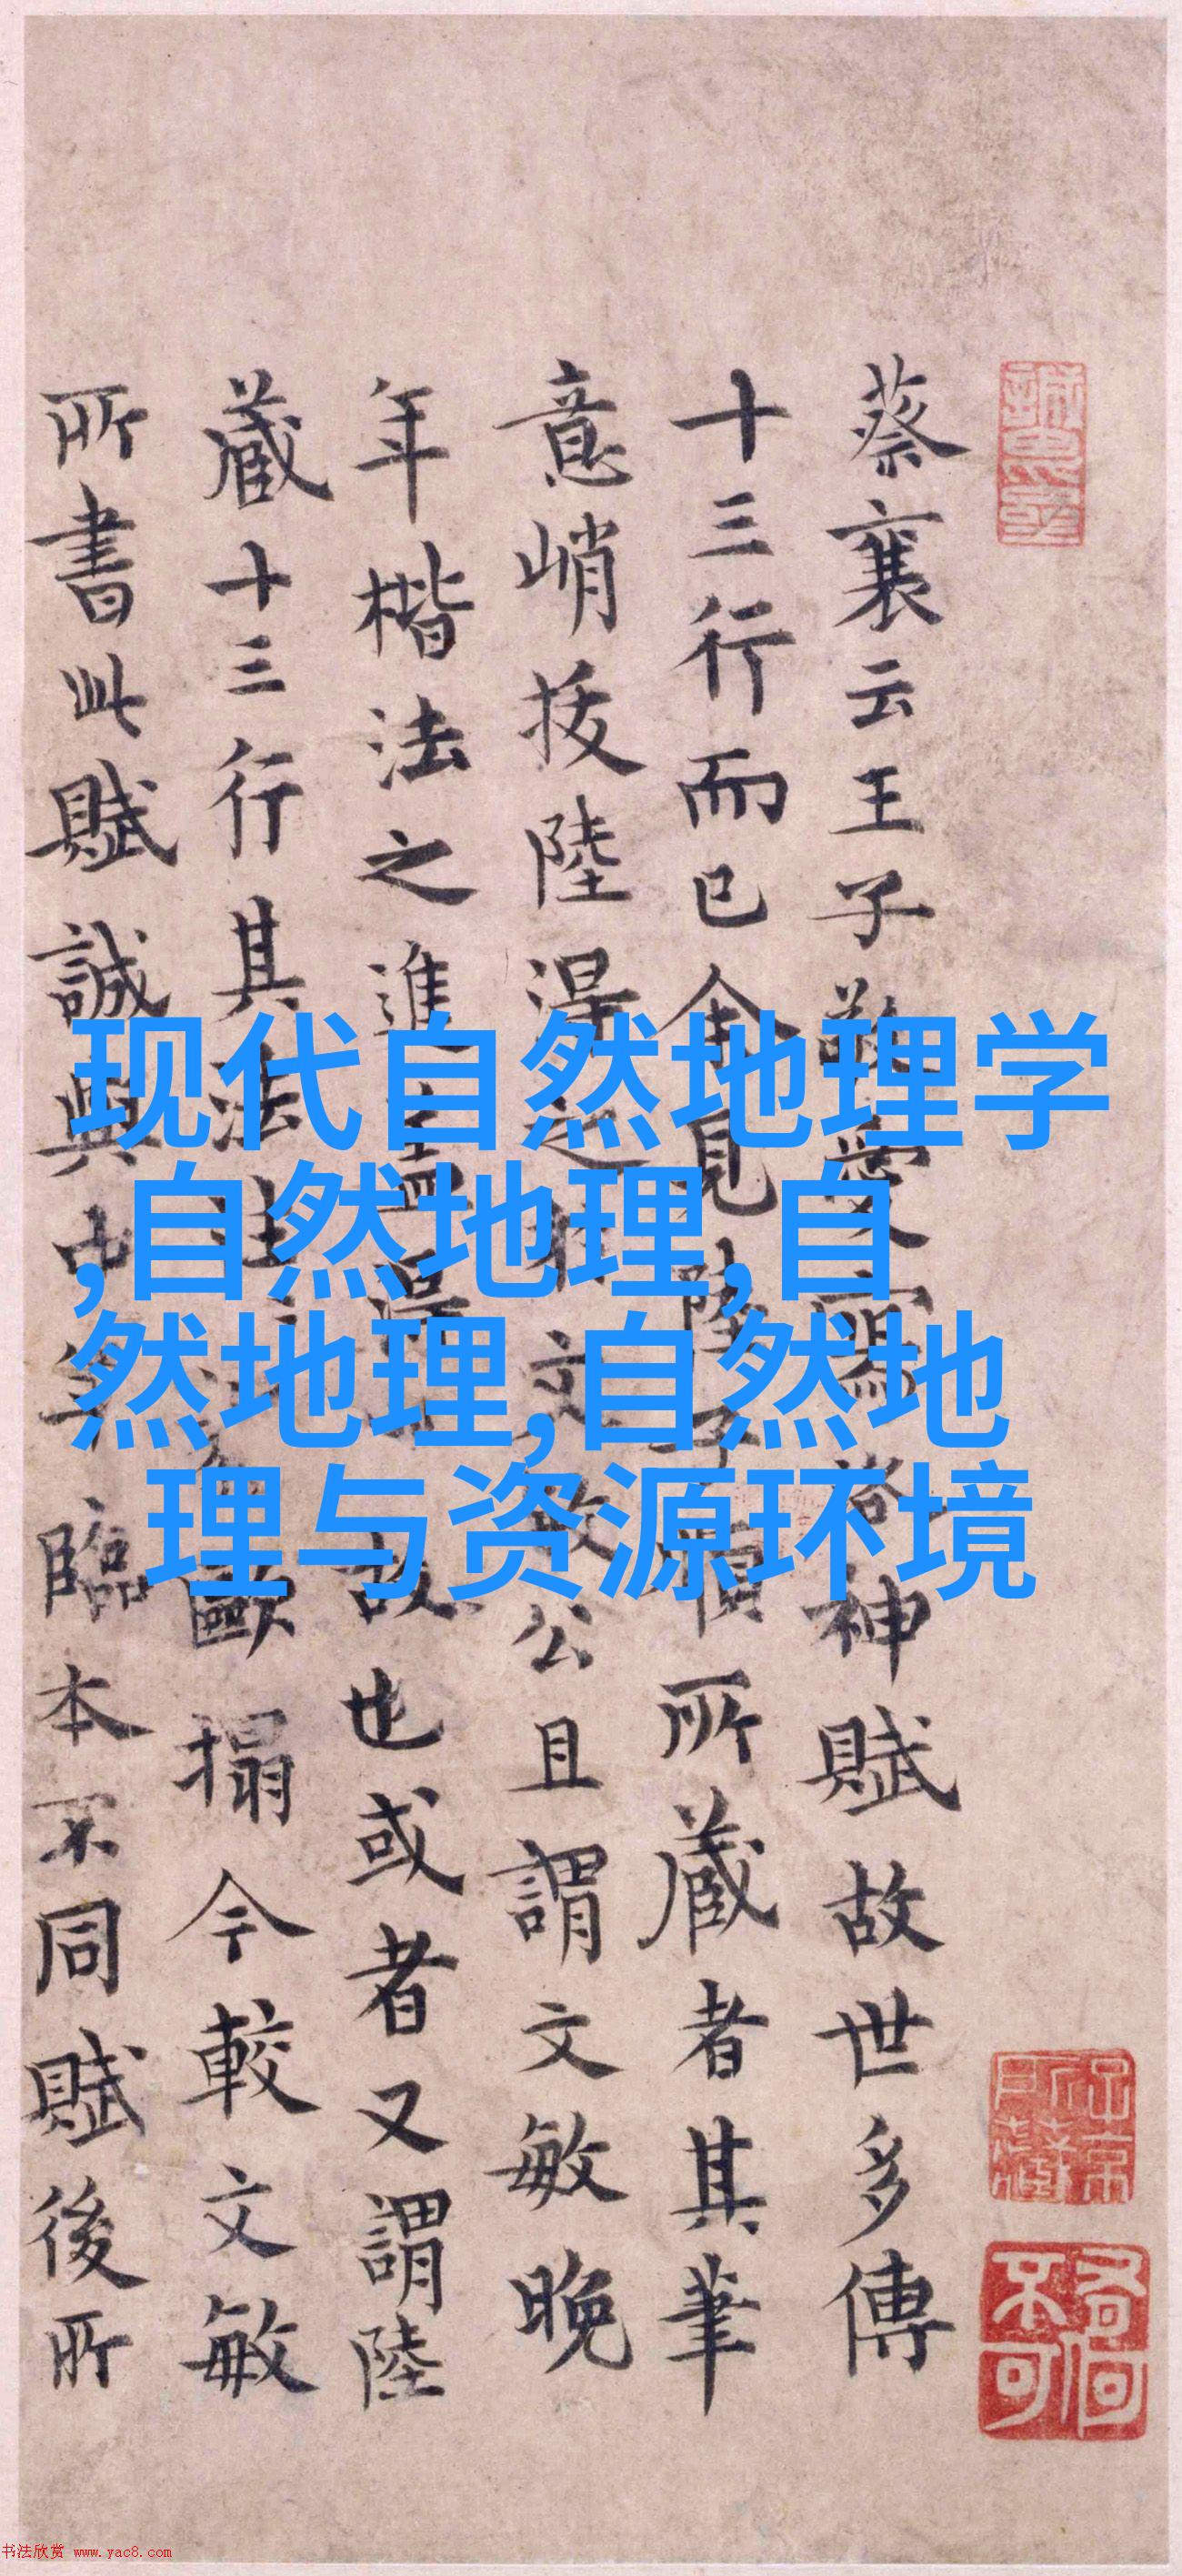 蔡襄云王子敬愛寫洛神賦故世多傳
十三行而已余見陸子順所藏者其筆
意峭拔陸之文敏公且謂文敏晚
年楷法之進蓋得故也或者又謂陸
藏十三行其法歐搨今較文敏
所書此賦誠與臨本不同賦後所
现代自然地理学
,自然地理,自
然地理,自然地
理与资源环境
书法欣赏 www.yac8.com